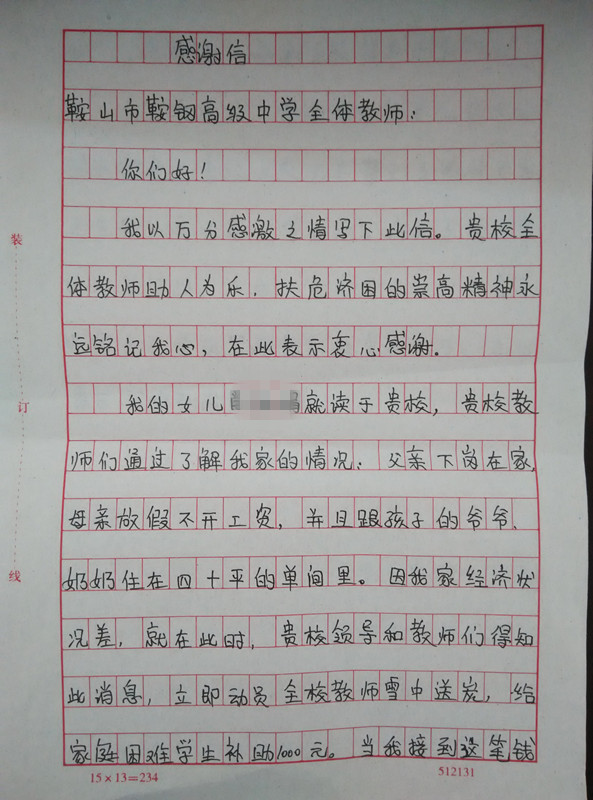 感谢信
鞍山市鞍钢高级中学全体教师:
你们好!
我以万分感激之情写下此信。贵校全
体教师助人为乐,扶危济困的崇高精神永
远铭记我心,在此表示衷心感谢。
我的女儿就读于贵校,贵校教
师们通过了解我家的情况:父亲下岗在家,
母亲放假不开工资,并且跟孩子的爷爷、
奶奶住在四十平的单间里。因我家经济状
况差,就在此时,贵校领导和教师们得知
此消息,立即动员全校教师雪中送炭,给
家庭困难学生补助1000元。当我接到这笔钱
装
订
线
15×13=234
512131